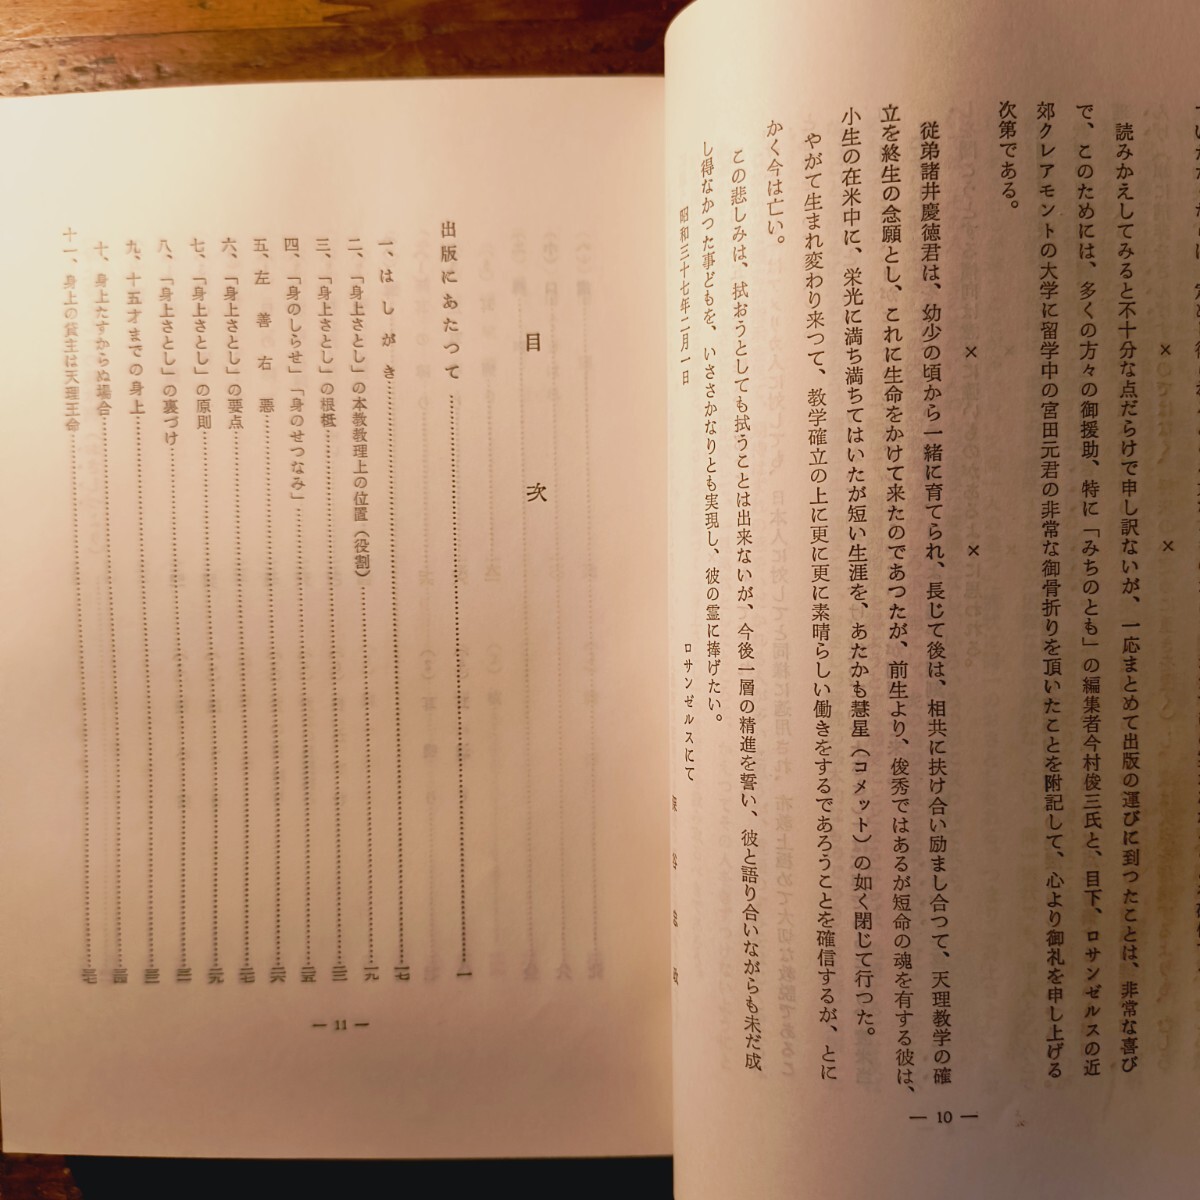 読みかえしてみると不十分な点だらけで申し訳ないが、一応まとめて出版の運びに到つたことは、非常な喜び
で、このためには、多くの方々の御援助、特に「みちのとも」の編集者今村俊三氏と、目下、ロサンゼルスの近
郊クレアモントの大学に留学中の宮田元君の非常な御骨折りを頂いたことを附記して、心より御礼を申し上げる
次第である。
× ×
従弟諸井慶徳君は、幼少の頃から一緒に育てられ、長じて後は、相共に扶け合い励まし合つて、天理教学の確
立を終生の念願とし、これに生命をかけて来たのであつたが、前生より、俊秀ではあるが短命の魂を有する彼は、
小生の在米中に、栄光に満ち満ちてはいたが短い生涯を、あたかも慧星（コメット）の如く閉じて行つた。
やがて生まれ変わり来つて、教学確立の上に更に更に素晴らしい働きをするであろうことを確信するが、とに
かく今は亡い。
この悲しみは、拭おうとしても拭うことは出来ないが、今後一層の精進を誓い、彼と語り合いながらも未だ成
し得なかつた事どもを、いささかなりとも実現し、彼の霊に捧げたい。
昭和三十七年二月一日
ロサンゼルスにて
— 10 —
目次
出版にあたつて 一
一、はしがき 一七
二、「身上さとし」の本教教理上の位置（役割） 一九
三、「身上さとし」の根柢 二三
四、「身のしらせ」「身のせつなみ」 二五
五、左善右悪 二六
六、「身上さとし」の要点 二七
七、「身上さとし」の原則 二九
八、「身上さとし」の裏づけ
九、十五才までの身上
十、身上たすからぬ場合
十一、身上の貸主は天理王命
— 11 —